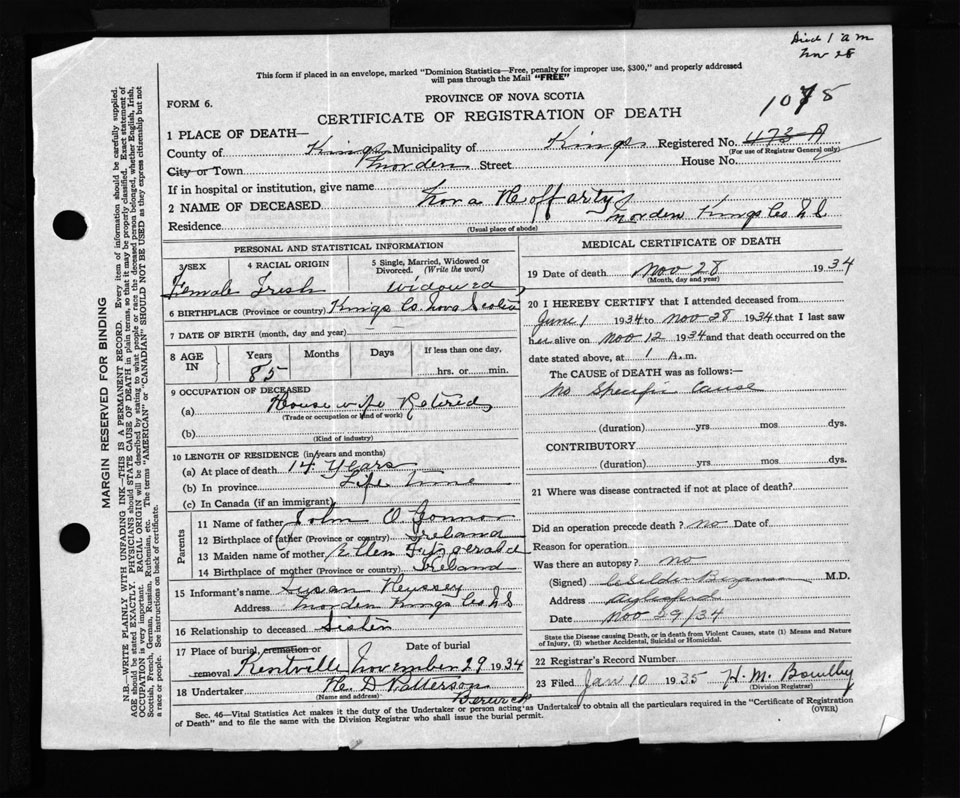 Died 1 a m
Nov 28
This form if placed in an envelope, marked "Dominion Statistics—Free, penalty for improper use, $300," and properly addressed
will pass through the Mail "FREE"
FORM 6.
PROVINCE OF NOVA SCOTIA
CERTIFICATE OF REGISTRATION OF DEATH
1078
1 PLACE OF DEATH—
County of Kings Municipality of Kings Registered No. 1173-A
(For use of Registrar General only)
City or Town Morden Street House No.
If in hospital or institution, give name
2 NAME OF DECEASED Nora Heffarity
Residence Morden Kings Co N S
(Usual place of abode)
PERSONAL AND STATISTICAL INFORMATION
3 SEX 4 RACIAL ORIGIN 5 Single, Married, Widowed or
Divorced. (Write the word)
Female Irish Widowed
6 BIRTHPLACE (Province or country) Kings Co. Nova Scotia
7 DATE OF BIRTH (month, day and year)
8 AGE IN Years Months Days If less than one day,
85 hrs. or min.
9 OCCUPATION OF DECEASED
(a) House wife Retired
(Trade or occupation or kind of work)
(b)
(Kind of industry)
10 LENGTH OF RESIDENCE (in years and months)
(a) At place of death 14 Years
(b) In province Life Time
(c) In Canada (if an immigrant)
Parents
11 Name of father John O Connor
12 Birthplace of father (Province or country) Ireland
13 Maiden name of mother Ellen Fitzgerald
14 Birthplace of mother (Province or country) Ireland
15 Informant's name Susan Heussey
Address Morden Kings Co N S
16 Relationship to deceased Sister
17 Place of burial, cremation or removal Date of burial
Kentville November 29 1934
18 Undertaker H. D Patterson
(Name and address) Berwick
MEDICAL CERTIFICATE OF DEATH
19 Date of death Nov 28 1934
(Month, day and year)
20 I HEREBY CERTIFY that I attended deceased from
June 1 1934 to Nov 28 1934 that I last saw
her alive on Nov 12 1934 and that death occurred on the
date stated above, at 1 A.m.
The CAUSE of DEATH was as follows:—
No Specific Cause
(duration) yrs mos dys.
CONTRIBUTORY
(duration) yrs mos dys.
21 Where was disease contracted if not at place of death?
Did an operation precede death? no Date of
Reason for operation
Was there an autopsy? no
(Signed) M.D.
Address Aylesford
Date Nov 29/34
State the Disease causing Death, or in death from Violent Causes, state (1) Means and Nature
of Injury, (2) whether Accidental, Suicidal or Homicidal.
22 Registrar's Record Number
23 Filed Jan 10 1935 H. M.
(Division Registrar)
Sec. 46—Vital Statistics Act makes it the duty of the Undertaker or person acting as Undertaker to obtain all the particulars required in the "Certificate of Registration
of Death" and to file the same with the Division Registrar who shall issue the burial permit.
(OVER)
MARGIN RESERVED FOR BINDING
N.B.—WRITE PLAINLY WITH UNFADING INK—THIS IS A PERMANENT RECORD. Every item of information should be carefully supplied.
AGE should be stated EXACTLY. PHYSICIANS should STATE CAUSE OF DEATH in plain terms, so that it may be properly classified. Exact statement of
OCCUPATION is very important. RACIAL ORIGIN will be described by stating to what people or race the deceased person belonged, whether English, Irish,
Scottish, French, German, Russian, Ruthenian, etc. The terms "AMERICAN" or "CANADIAN" SHOULD NOT BE USED as they express citizenship but not
a race or people. See instructions on back of certificate.